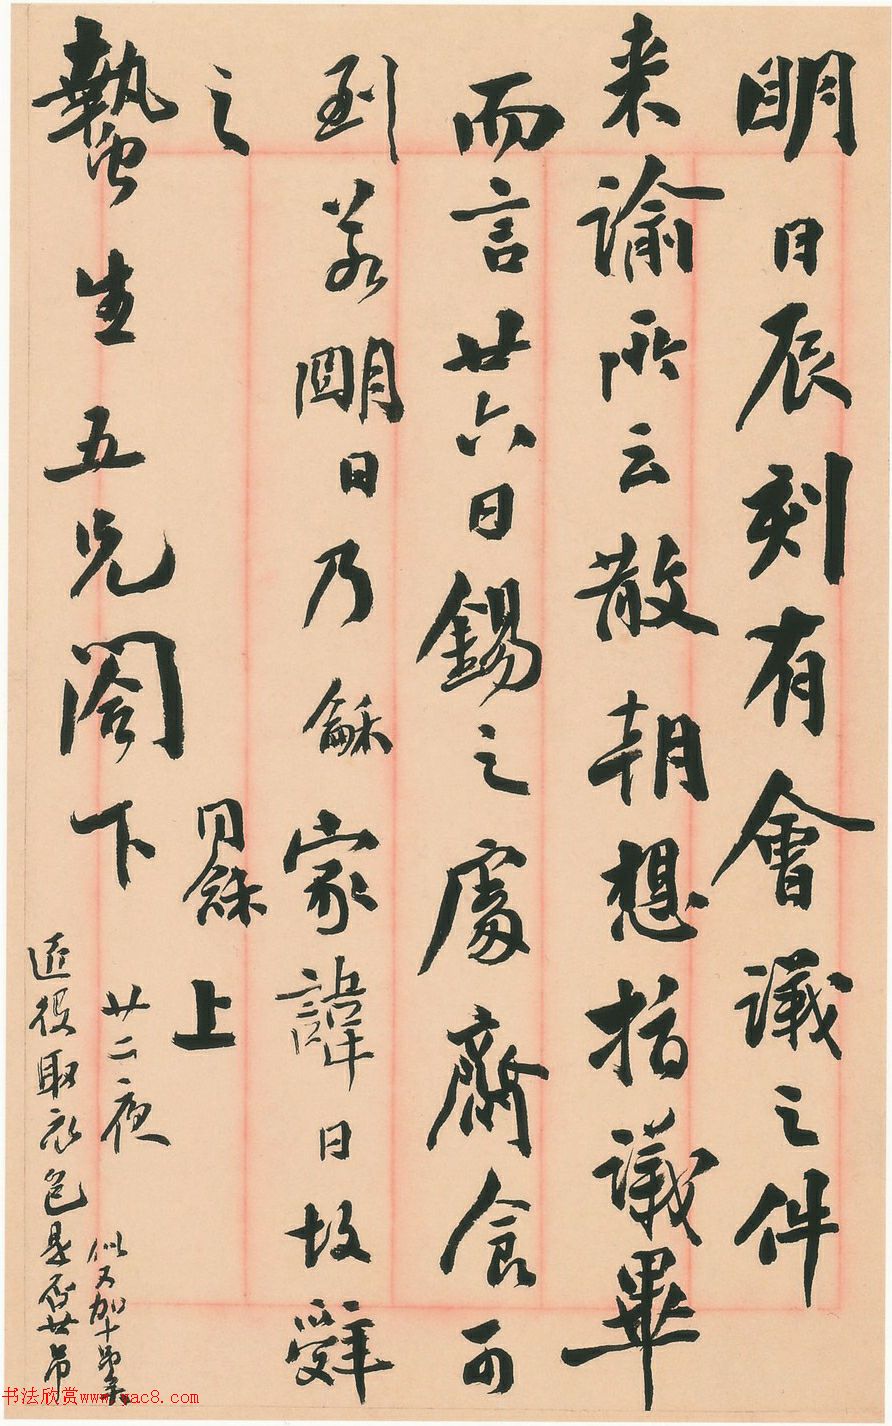 明日辰刻有會議之件
来諭所云散朝想指議畢
而言廿六日錫之處齋食可
到若明日乃龢家諱日故辤
之
同龢上
蟄生五兄閤下
廿二夜
近役取衣包是否廿吊
似又加十
书法欣赏www.yac8.com